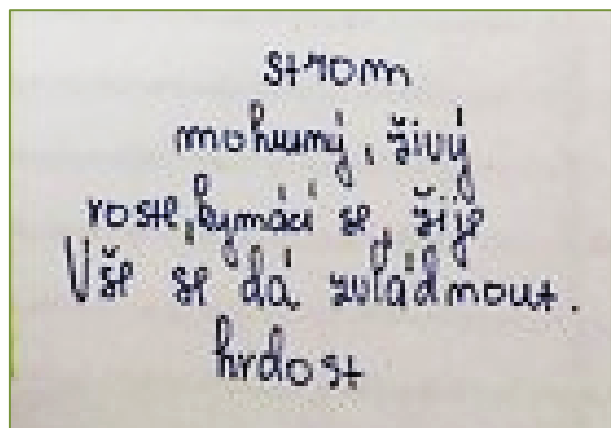 strom
mohutný, živý
roste, kymácí se, žije
Vše se dá zvládnout.
hrdost